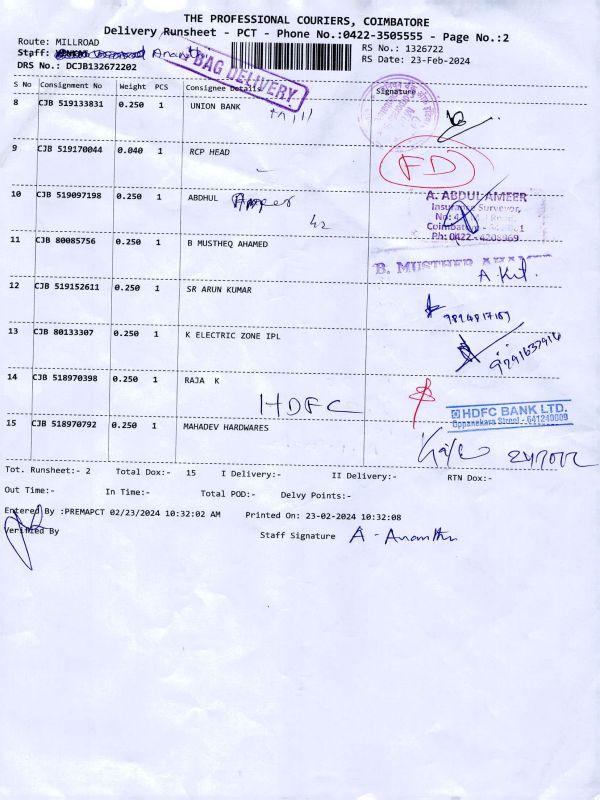 THE PROFESSIONAL COURIERS, COIMBATORE
Delivery Runsheet - PCT - Phone No.:0422-3505555 - Page No.:2
Route: MILLROAD
RS No.: 1326722
Staff: Ananthi
RS Date: 23-Feb-2024
DRS No.: DCJB132672202
BAG DELIVERY
S No Consignment No Weight PCS Consignee Details Signature
8 CJB 519133831 0.250 1 UNION BANK
9 CJB 519170044 0.040 1 RCP HEAD FD
10 CJB 519097198 0.250 1 ABDHUL Ameer
42
A. ABDUL AMEER
Insurance Surveyor,
Ph: 0422-4208969
11 CJB 80085756 0.250 1 B MUSTHEQ AHAMED
B. MUSTHEQ
12 CJB 519152611 0.250 1 SR ARUN KUMAR
13 CJB 80133307 0.250 1 K ELECTRIC ZONE IPL
14 CJB 518970398 0.250 1 RAJA K
HDFC
HDFC BANK LTD.
Oppanakara Street - 641240009
15 CJB 518970792 0.250 1 MAHADEV HARDWARES
Tot. Runsheet:- 2 Total Dox:- 15 I Delivery:- II Delivery:- RTN Dox:-
Out Time:- In Time:- Total POD:- Delvy Points:-
Entered By :PREMAPCT 02/23/2024 10:32:02 AM Printed On: 23-02-2024 10:32:08
Verified By
Staff Signature A - Ananthi